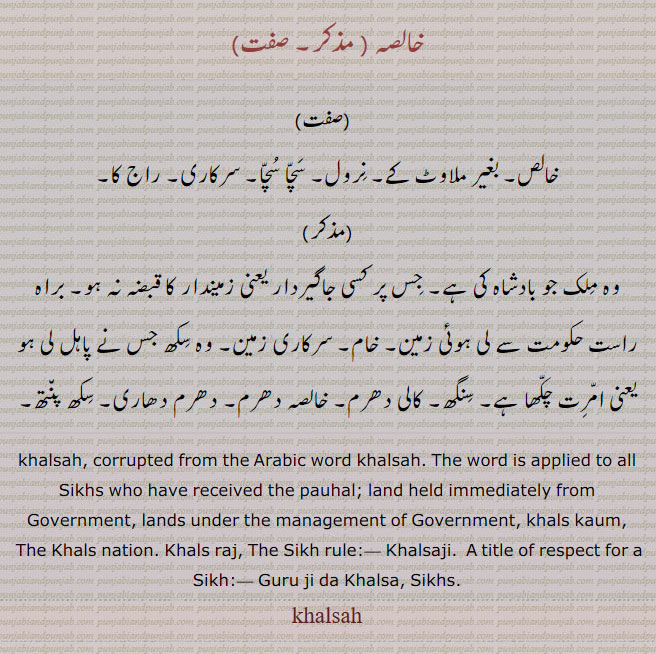 خالصہ ( مذکر ۔ صفت)
(صفت)
خالص۔ بغیر ملاوٹ کے۔ نِرول۔ سَچّا سُچّا۔ سرکاری۔ راج کا۔
(مذکر)
وہ مِلک جو بادشاہ کی ہے۔ جِس پر کسی جاگیردار یعنی زمیندار کا قبضہ نہ ہو۔ براہ
راست حکومت سے لی ہوئی زمین۔ خام۔ سرکاری زمین۔ وہ سِکھ جس نے پاہل لی ہو
یعنی امّرِت چَکّھا ہے۔ سِنگھ۔ کالی دھرم۔ خالصہ دھرم۔ دھرم دھاری۔ سِکھ پنّتھ۔
khalsah, corrupted from the Arabic word khalsah. The word is applied to all
Sikhs who have received the pauhal; land held immediately from
Government, lands under the management of Government, khals kaum,
The Khals nation. Khals raj, The Sikh rule:— Khalsaji. A title of respect for a
Sikh:— Guru ji da Khalsa, Sikhs.
khalsah